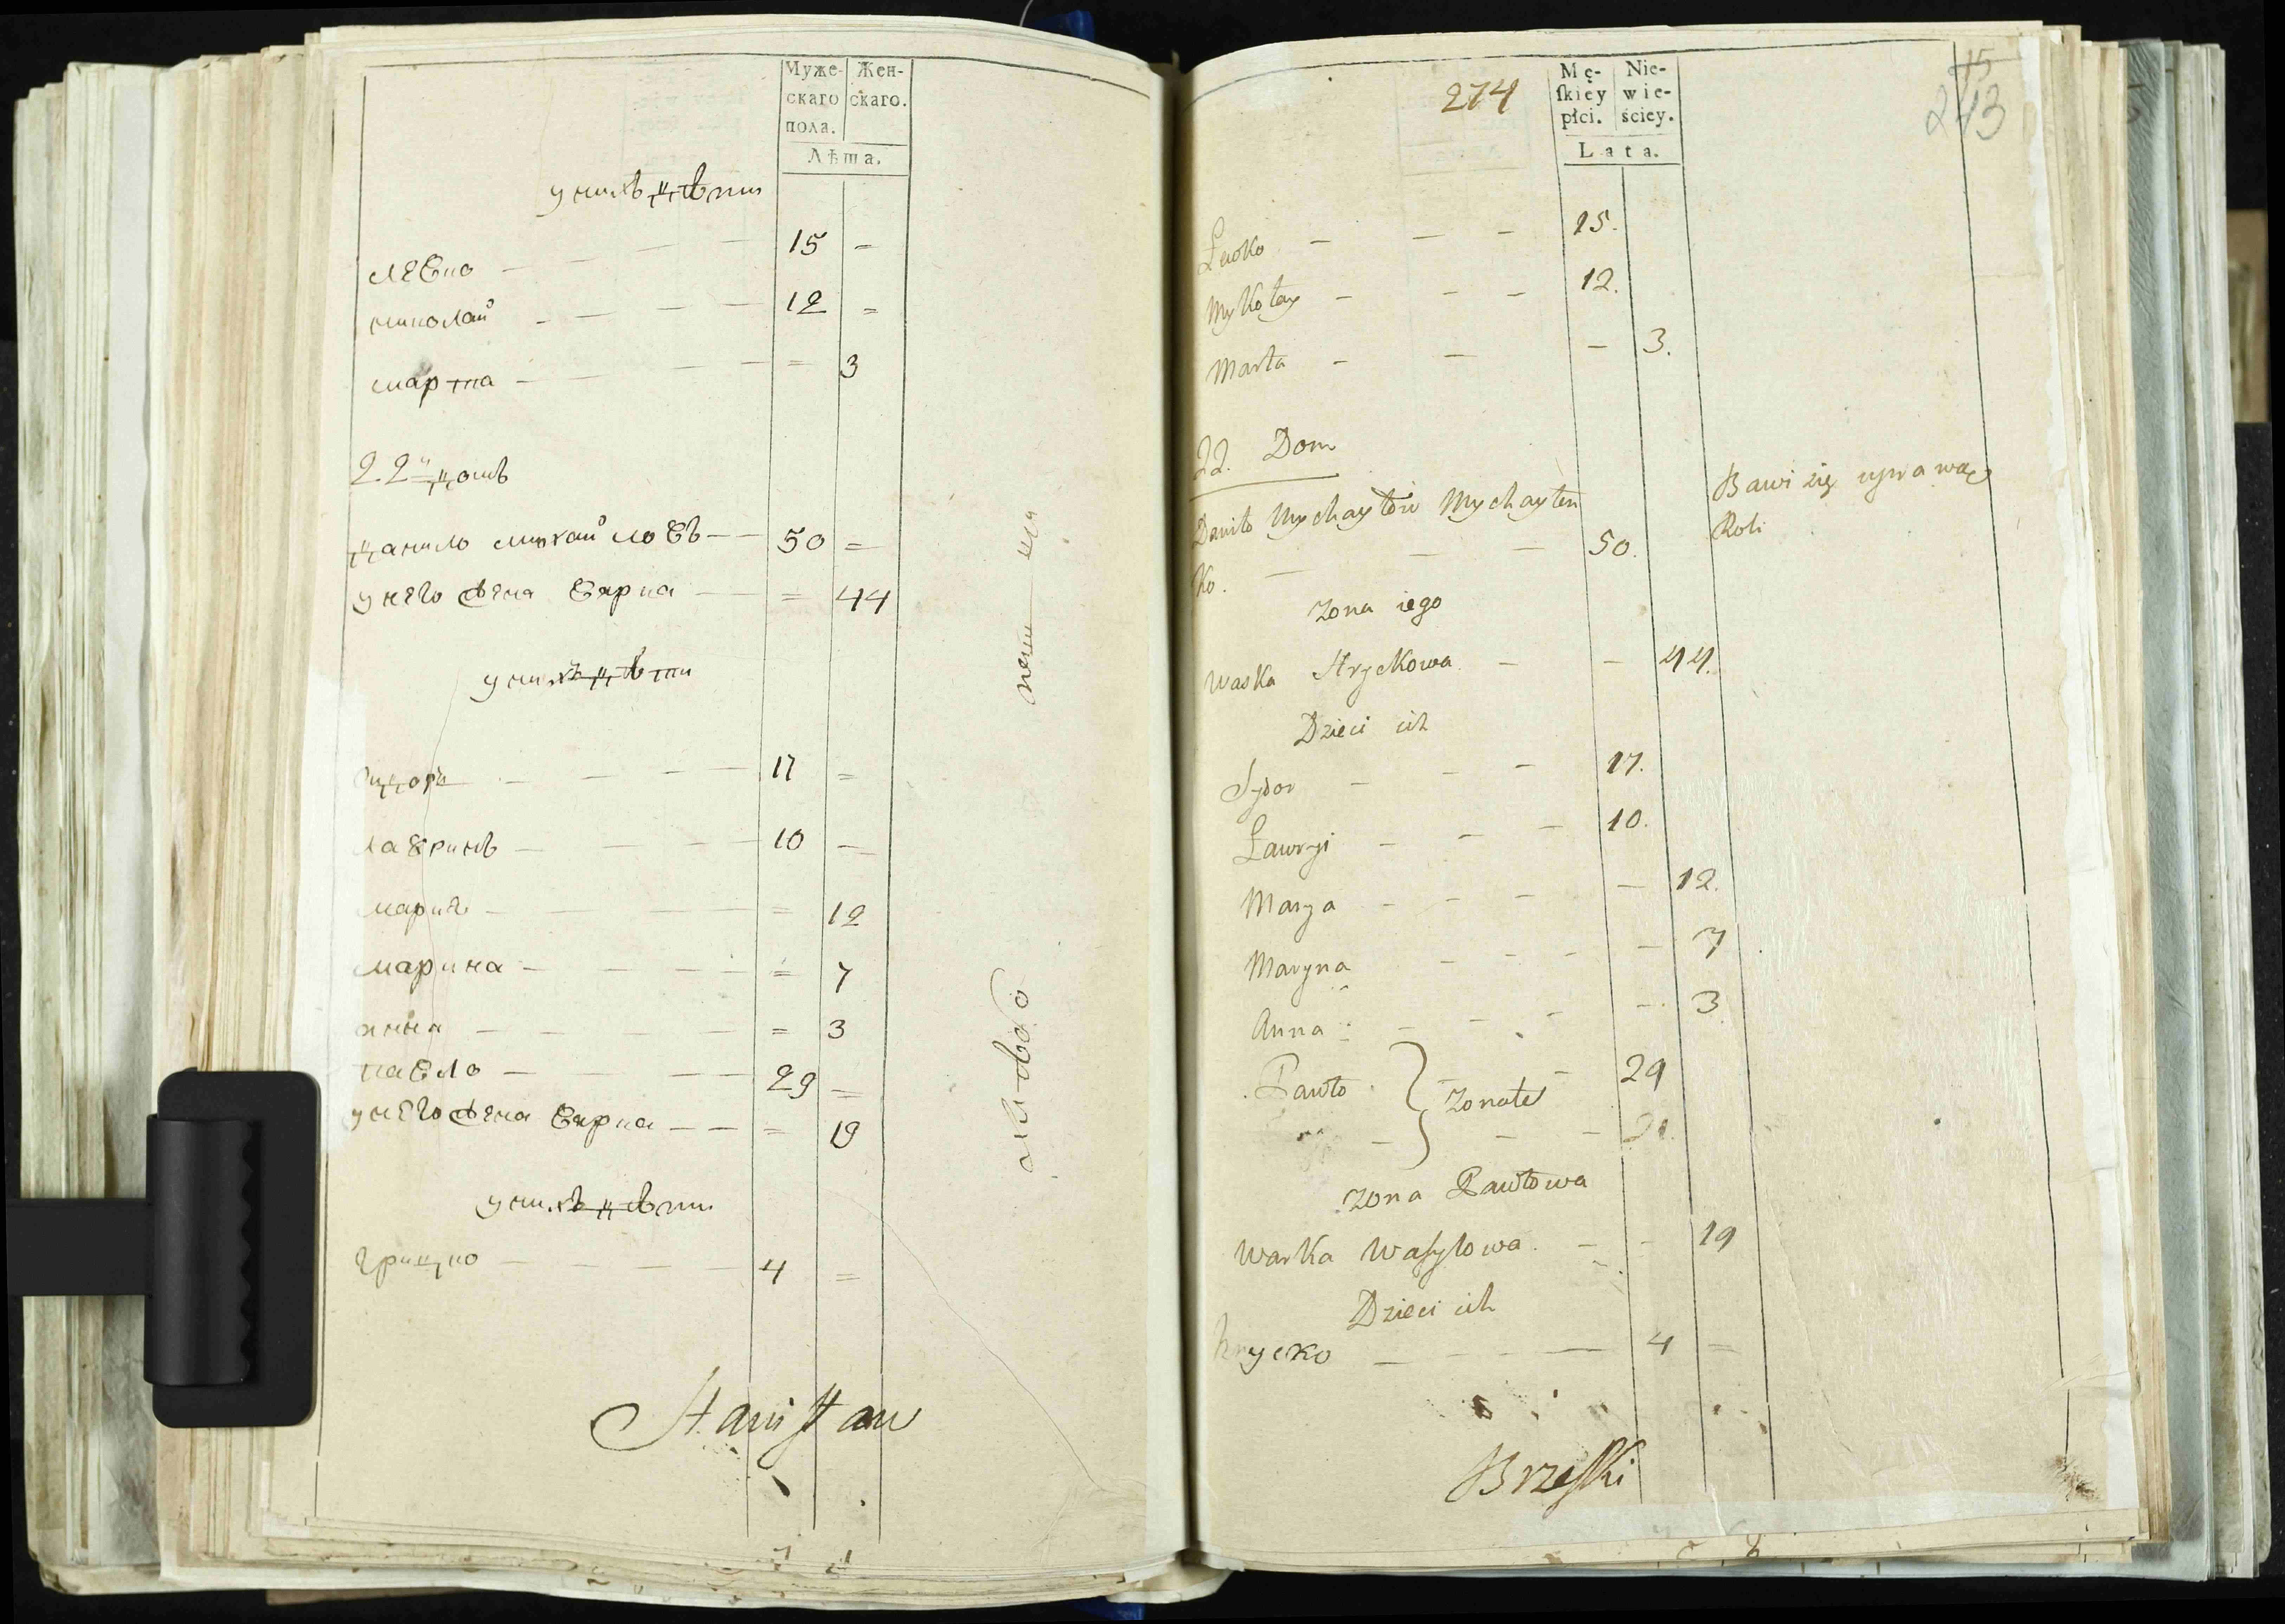 Муже-
скаго
пола.
Жен-
скаго.
Лѣта.
у нихъ дѣти
левко — — — — 15 =
миколай — — — — 12 =
марта — — — — = 3
22й домъ
данило михайловъ — — 50 =
у него жена варка — — = 44
у нихъ дѣти
сидоръ — — — — 17 =
лавринъ — — — — 10 —
мария — — — — = 12
марина — — — — = 7
анна — — — — = 3
павло — — — — 29 =
у него жена варка — — = 19
у нихъ дѣти
грицко — — — — 4 =
Stanisław
274
Mę-
skiey
płci.
Nie-
wie-
ściey.
Lata.
15
243
Lewko — — — 15.
Mykołay — — — 12.
Marta — — — 3.
22. Dom
Daniło Mychayłow Mychayłen
ko. — — 50.
Bawi się uprawą
Roli
Zona iego
Waska Hryckowa — — 44.
Dzieci ich
Sydor — — — 17.
Ławryi — — — 10.
Marya — — — — 12.
Maryna — — — — 7
Anna — — — — 3
Pawło } Zonate — — 29
Zona Pawłowa
Warka Wasylowa. — — 19
Dzieci ich
hrycko — — — — 4 —
Brzeski